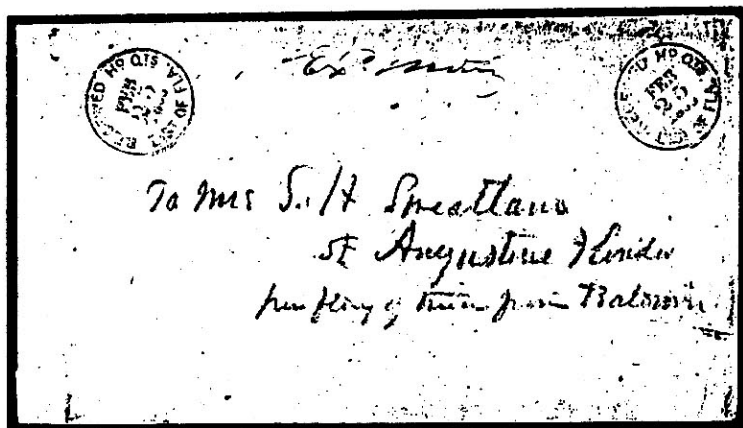 RECEIVED Hd QTS DIST OF FLA. FEB
RECEIVED Hd QTS DIST OF FLA. FEB 25
Exd
To Mrs S. H
St Augustine Florida
per flag of truce from Baldwin